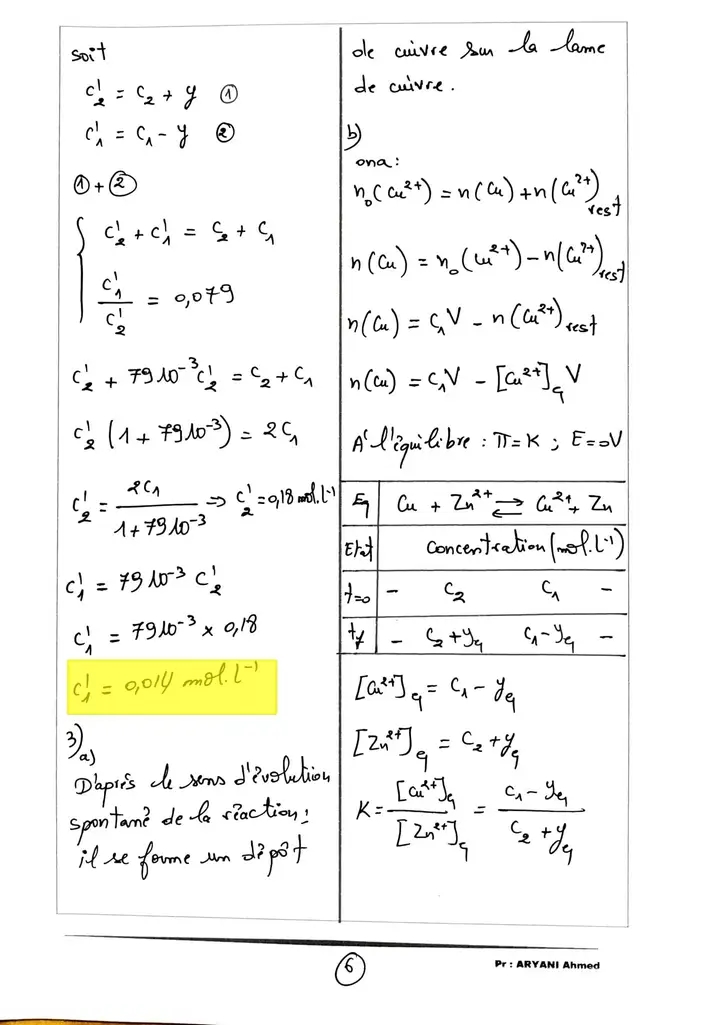 soit
c'₂ = c₂ + y ①
c'₁ = c₁ - y ②
① + ②
c'₂ + c'₁ = c₂ + c₁
c'₁ / c'₂ = 0,079
c'₂ + 79.10⁻³ c'₂ = c₂ + c₁
c'₂ (1 + 79.10⁻³) = 2c₁
c'₂ = 2c₁ / (1 + 79.10⁻³) ⇒ c'₂ = 0,18 mol.l⁻¹
c'₁ = 79.10⁻³ c'₂
c'₁ = 79.10⁻³ × 0,18
c'₁ = 0,014 mol.l⁻¹
3)
a)
D'après le sens d'évolution
spontané de la réaction :
il se forme un dépôt
de cuivre sur la lame
de cuivre.
b)
ona :
n₀(Cu²⁺) = n(Cu) + n(Cu²⁺)rest
n(Cu) = n₀(Cu²⁺) - n(Cu²⁺)rest
n(Cu) = c₁V - n(Cu²⁺)rest
n(Cu) = c₁V - [Cu²⁺]q V
A l'équilibre : π = K ; E = 0V
Eq Cu + Zn²⁺ ⇌ Cu²⁺ + Zn
Etat Concentration (mol.L⁻¹)
t=0 - c₂ c₁ -
tf - c₂+yq c₁-yq -
[Cu²⁺]q = c₁ - yq
[Zn²⁺]q = c₂ + yq
K = [Cu²⁺]q / [Zn²⁺]q = (c₁ - yq) / (c₂ + yq)
6
Pr : ARYANI Ahmed